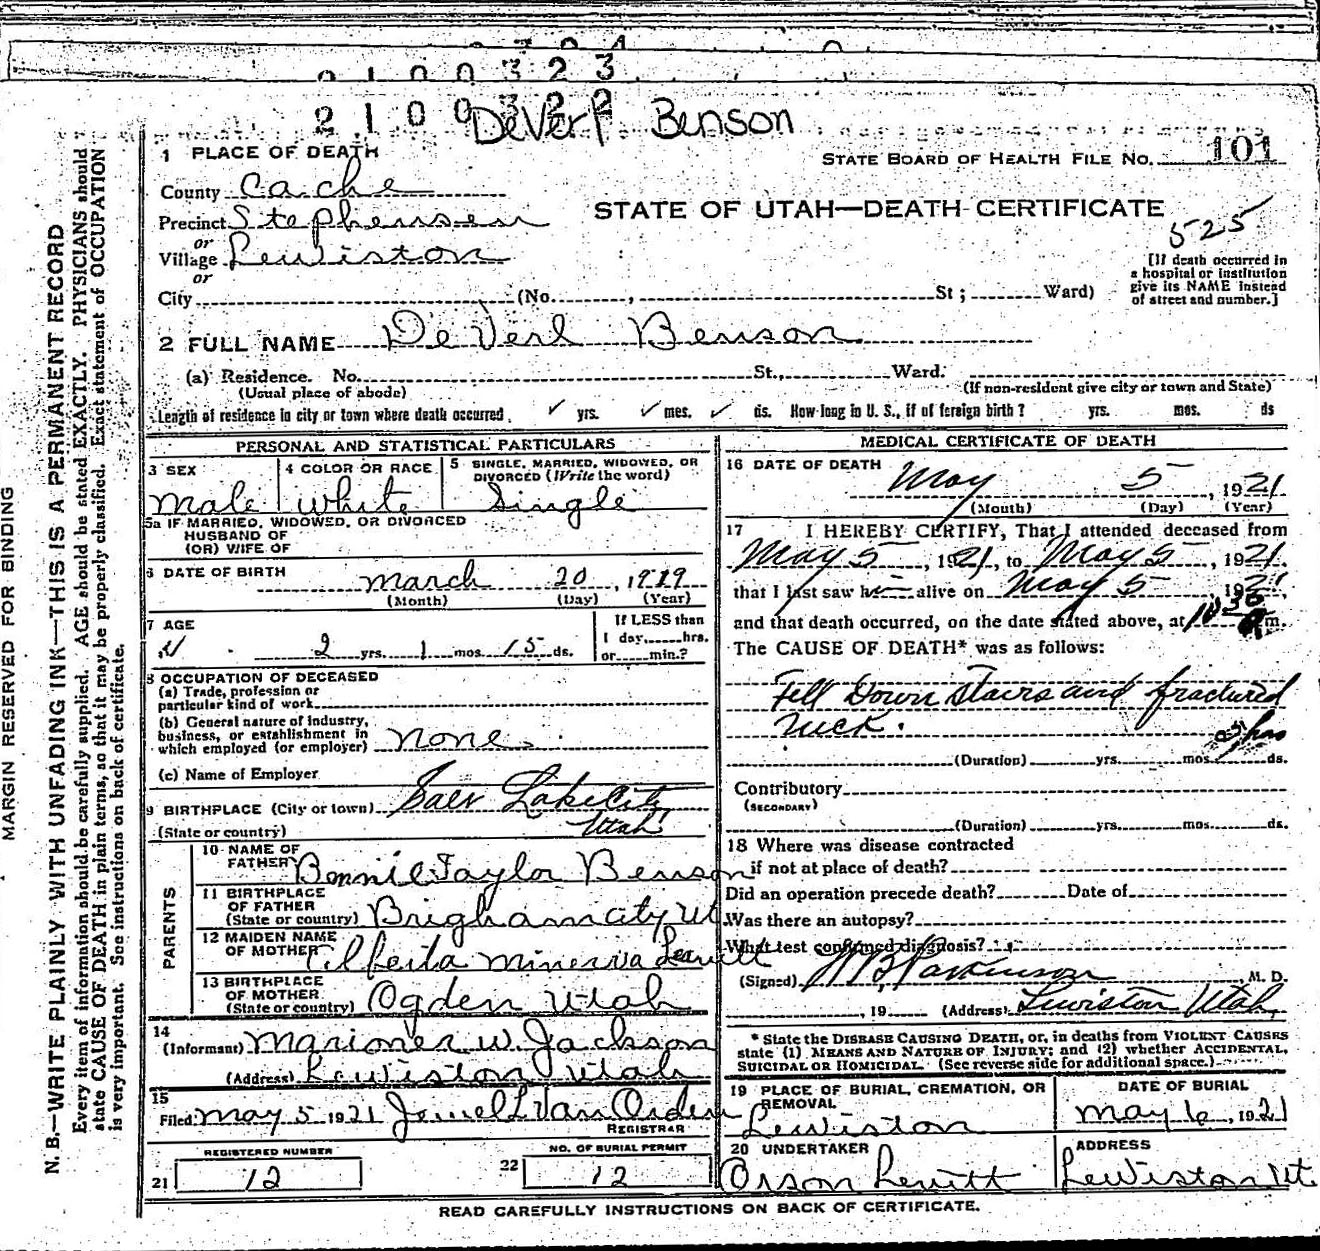 2 1 0 0 3 2 3
2 1 0 0 3 2 2
DeVerl Benson
1 PLACE OF DEATH
STATE BOARD OF HEALTH FILE NO. 101
County Cache
STATE OF UTAH—DEATH CERTIFICATE
Precinct Stephenson
525
or
Village Lewiston
or
[If death occurred in a hospital or institution give its NAME instead of street and number.]
City (No. , St; Ward)
2 FULL NAME De Verl Benson
(a) Residence. No. St., Ward.
(Usual place of abode) (If non-resident give city or town and State)
Length of residence in city or town where death occurred yrs. mos. ds. How long in U. S., if of foreign birth? yrs. mos. ds
PERSONAL AND STATISTICAL PARTICULARS
3 SEX 4 COLOR OR RACE 5 SINGLE, MARRIED, WIDOWED, OR DIVORCED (Write the word)
Male white Single
5a IF MARRIED, WIDOWED, OR DIVORCED
HUSBAND OF
(OR) WIFE OF
6 DATE OF BIRTH March 20, 1919
(Month) (Day) (Year)
7 AGE
2 yrs. 1 mos. 15 ds.
If LESS than
1 day, hrs.
or min.?
8 OCCUPATION OF DECEASED
(a) Trade, profession or
particular kind of work
(b) General nature of industry,
business, or establishment in
which employed (or employer) none
(c) Name of Employer
9 BIRTHPLACE (City or town) Lake City
(State or country) Utah
PARENTS
10 NAME OF
FATHER Bennie Taylor Benson
11 BIRTHPLACE
OF FATHER
(State or country) Brigham City Ut
12 MAIDEN NAME
OF MOTHER Alberta Minerva Leavitt
13 BIRTHPLACE
OF MOTHER
(State or country) Ogden Utah
14
(Informant) Marioner W. Jackson
(Address) Lewiston Utah
15
Filed May 5 1921 Jewel L Van Orden
REGISTRAR
REGISTERED NUMBER
21 12
NO. OF BURIAL PERMIT
22 12
MEDICAL CERTIFICATE OF DEATH
16 DATE OF DEATH
May 5, 1921
(Month) (Day) (Year)
17 I HEREBY CERTIFY, That I attended deceased from
May 5, 1921, to May 5, 1921
that I last saw h alive on May 5 1921,
and that death occurred, on the date stated above, at m.
The CAUSE OF DEATH* was as follows:
Fell Down Stairs and fractured
neck.
hrs
(Duration) yrs. mos. ds.
Contributory
(SECONDARY)
(Duration) yrs. mos. ds.
18 Where was disease contracted
if not at place of death?
Did an operation precede death? Date of
Was there an autopsy?
What test confirmed diagnosis?
(Signed) W B Parkinson M. D.
, 19 (Address) Lewiston Utah,
* State the DISEASE CAUSING DEATH, or, in deaths from VIOLENT CAUSES
state (1) MEANS AND NATURE OF INJURY; and (2) whether ACCIDENTAL,
SUICIDAL OR HOMICIDAL. (See reverse side for additional space.)
19 PLACE OF BURIAL, CREMATION, OR
REMOVAL
Lewiston
DATE OF BURIAL
May 6, 1921
20 UNDERTAKER
Orson Levitt
ADDRESS
Lewiston Ut.
READ CAREFULLY INSTRUCTIONS ON BACK OF CERTIFICATE.
MARGIN RESERVED FOR BINDING
N. B.—WRITE PLAINLY WITH UNFADING INK—THIS IS A PERMANENT RECORD
Every item of information should be carefully supplied. AGE should be stated EXACTLY. PHYSICIANS should
state CAUSE OF DEATH in plain terms, so that it may be properly classified. Exact statement of OCCUPATION
is very important. See instructions on back of certificate.